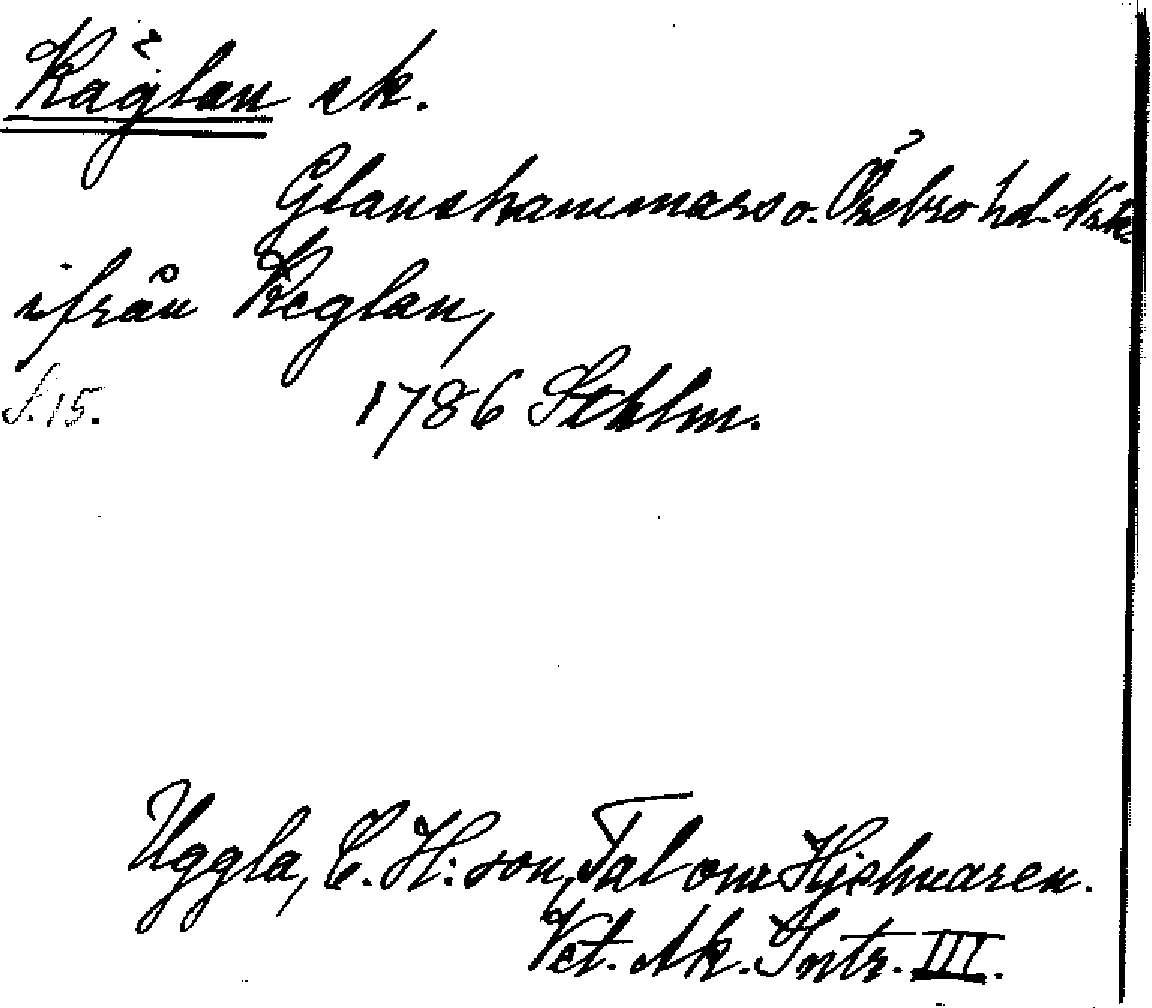 Käglan sk.
Glanshammars o. Örebro hd. Nrke
ifrån Keglan,
S. 15. 1786 Sthlm.
Uggla, C. H:son, Tal om Hjelmaren.
Vet. Ak. Intr. III.